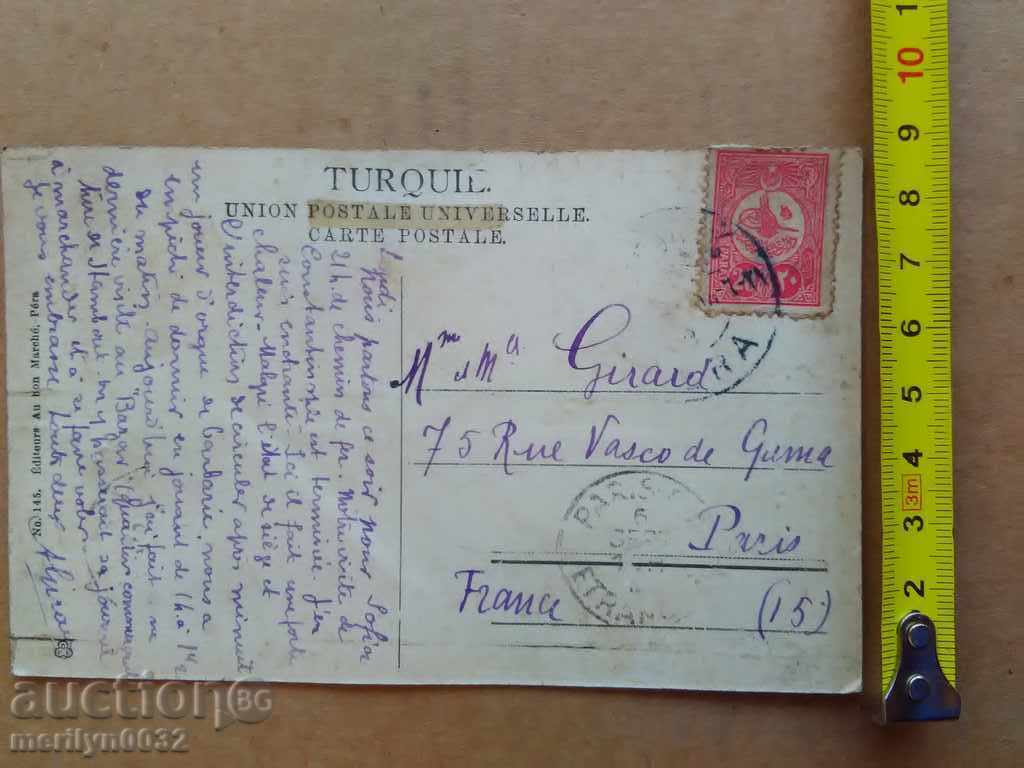 TURQUIE.
UNION POSTALE UNIVERSELLE.
CARTE POSTALE.
Lundi
Nous partons ce soir pour Sofia
21h de chemin de fer. Notre visite de
Constantinople est terminée. j'en
suis enchanté. Ici il fait une forte
chaleur. Malgré l'état de siège et
l'interdiction de circuler après minuit
un joueur d'orgue de Barbarie nous a
empêché de dormir en jouant de 1h à
du matin. aujourd'hui j'ai fait ma
dernière visite au "Bazar" quartier commerçant
de Stamboul. on y passerait sa journée
à marchander et à se faire voler.
Je vous embrasse toutes deux
AGirard
No. 145. Editeurs Au bon Marché, Péra
Mme & Ma Girard
75 Rue Vasco de Gama
Paris
France (15)
PARIS
6
ETRANG
RA
auctionBG
merilyn0032
1
10
9
8
7
6
5
4
3 3m
2